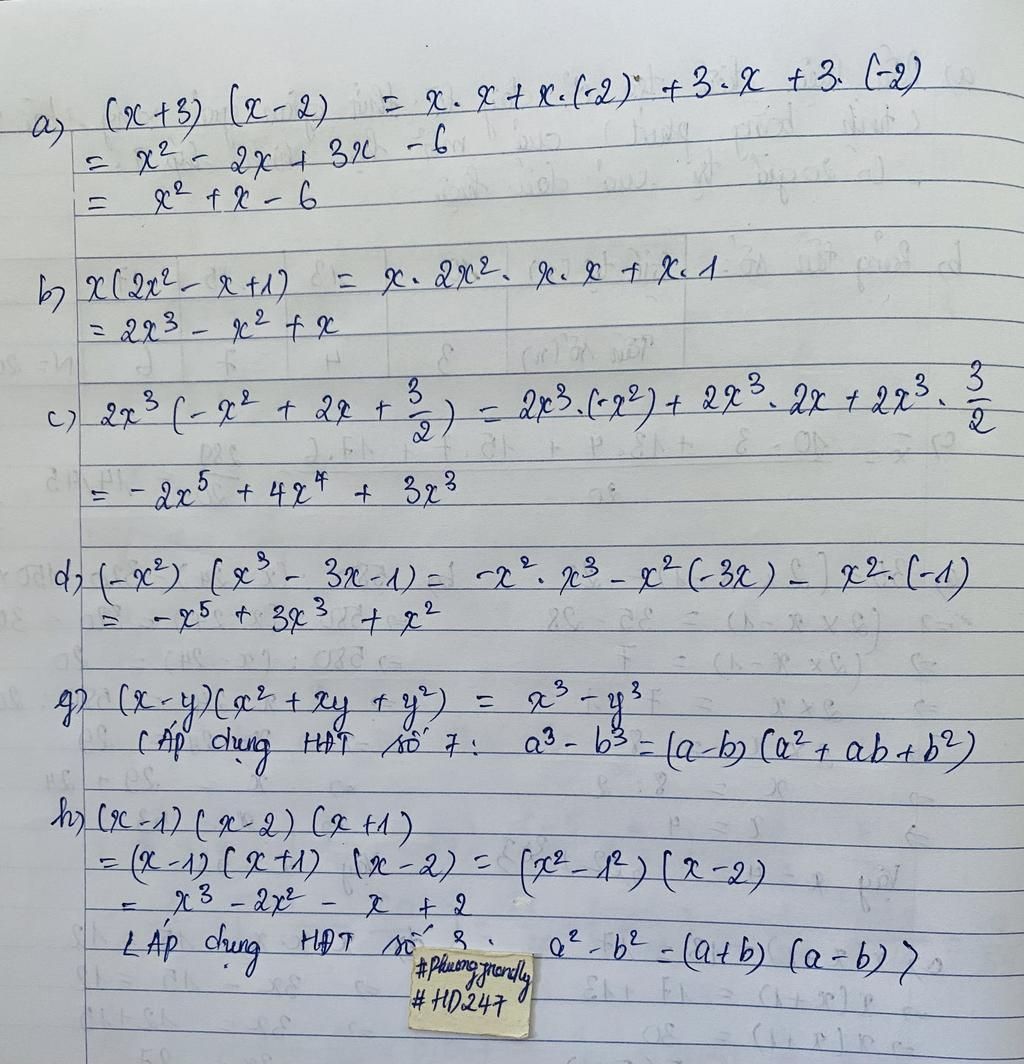 a) (x+3) (x-2) = x.x+x.(-2) +3.x +3.(-2)
= x² - 2x + 3x - 6
= x² + x - 6
b) x(2x² - x+1) = x.2x². x.x + x.1
= 2x³ - x² + x
c) 2x³ (-x² + 2x + 3/2) = 2x³.(-x²) + 2x³.2x + 2x³.3/2
= -2x⁵ + 4x⁴ + 3x³
d) (-x²) (x³ - 3x-1) = -x².x³ - x²(-3x) - x².(-1)
= -x⁵ + 3x³ + x²
g) (x-y)(x² + xy + y²) = x³ - y³
(Áp dụng HĐT số 7: a³ - b³ = (a-b) (a² + ab + b²)
h) (x-1) (x-2) (x+1)
= (x-1) (x+1) (x-2) = (x² - 1²) (x-2)
= x³ - 2x² - x + 2
(Áp dụng HĐT số 3: a² - b² = (a+b) (a-b) )
#HD247